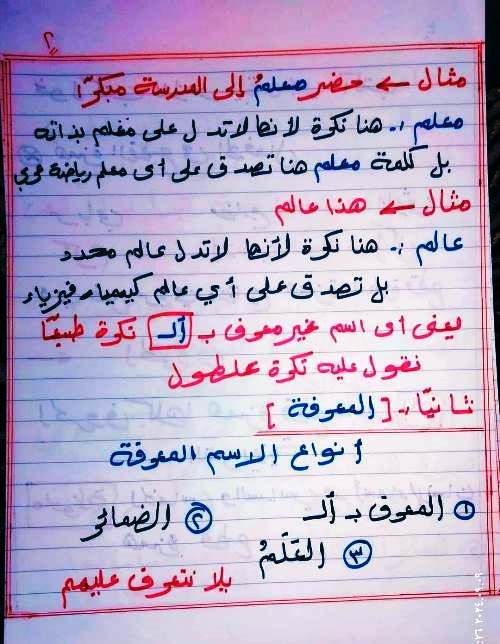 ٢
مثال ← حضر معلمُ إلى المدرسة مبكرًا
معلم :. هنا نكرة لأنها لا تدل على معلم بذاته
بل كلمة معلم هنا تصدق على أى معلم رياضة عربي
مثال ← هذا عالم
عالم :. هنا نكرة لأنها لا تدل عالم محدد
بل تصدق على أي عالم كيمياء فيزياء
يعنى أى اسم غير معرف ب ألـ نكرة طبعًا
نقول عليه نكرة علطول
ثانيًا :. [المعرفة]
أنواع الاسم المعرفة
① المعرف ب ألـ ② الضمائر
③ العَلَمُ
يلا نتعرف عليهم